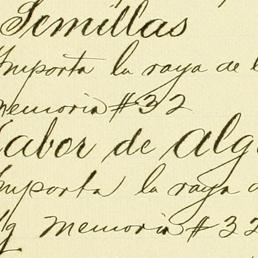 Semillas
Importa la raya de l
memoria #32
Labor de alg
Importa la raya d
y memoria #32